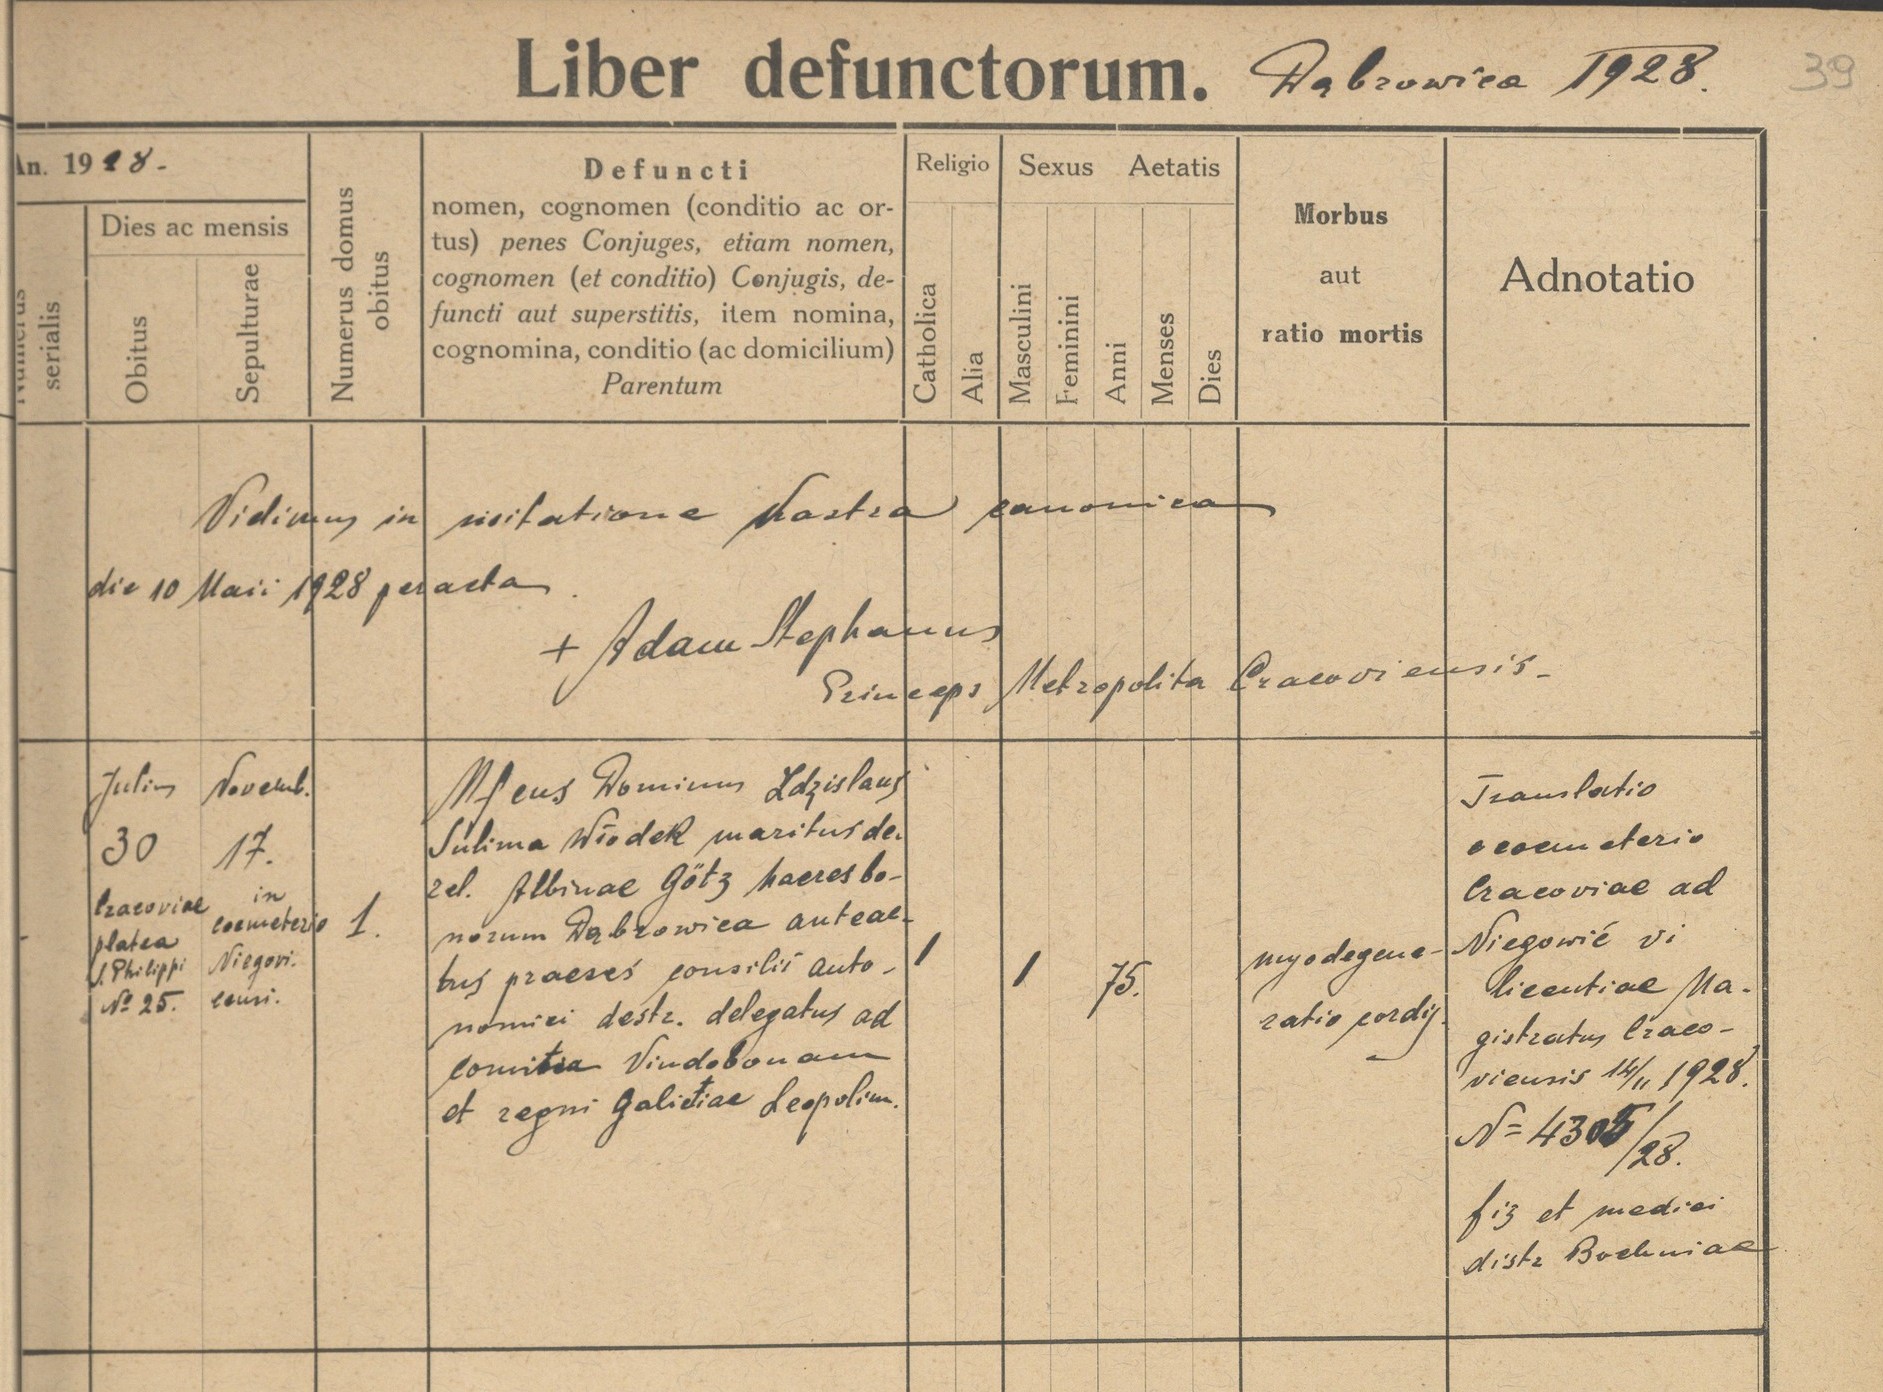 Liber defunctorum. Dąbrowica 1928.
39
An. 1928.
Numerus serialis
Dies ac mensis
Obitus
Sepulturae
Numerus domus obitus
Defuncti
nomen, cognomen (conditio ac or-
tus) penes Conjuges, etiam nomen,
cognomen (et conditio) Conjugis, de-
functi aut superstitis, item nomina,
cognomina, conditio (ac domicilium)
Parentum
Religio
Catholica
Alia
Sexus
Masculini
Feminini
Aetatis
Anni
Menses
Dies
Morbus
aut
ratio mortis
Adnotatio
Vidimus in visitatione Nostra canonica
die 10 Maii 1928 peracta.
+ Adam Stephanus
Princeps Metropolita Cracoviensis-
Julius
30
Cracoviae
platea
S. Philippi
No 25.
Novemb.
17.
in
coemeterio
Niegovi.
censi.
1.
Dominus Zdzislaus
Sulima Włodek maritus de.
rel. Albinae Götz haeres bo-
norum Dąbrowica anteac-
tus praeses consilii auto-
nomici destr. delegatus ad
comitia Vindobonam
et regni Galictiae Leopolim.
1
1
75.
myodegene-
ratio cordis.
Translatio
e coemeterio
Cracoviae ad
Niegowić vi
licentiae Ma-
gistratus Craco-
viensis 14/11 1928.
N= 4305/28.
fiz et medici
distr Bochniae